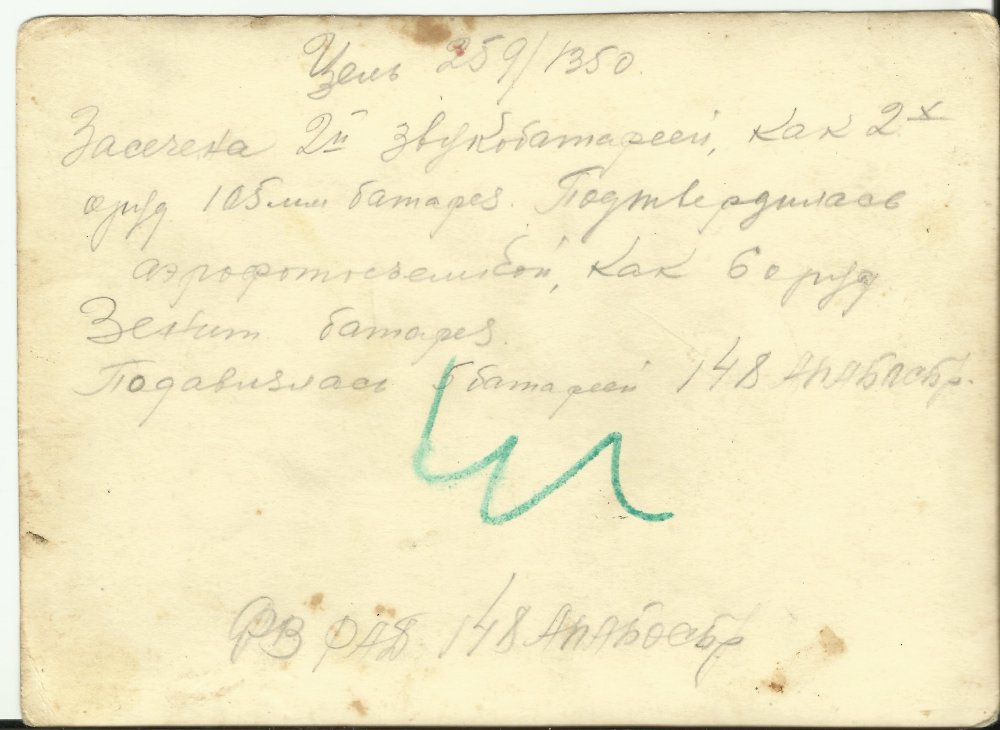 Цель 259/1350.
Засечена 2й звукобатареей, как 2х
оруд 105мм батарея. Подтвердилась
аэрофотосъемкой, как 6 оруд
Зенит батарея.
Подавлялась 5 батареей 148
148